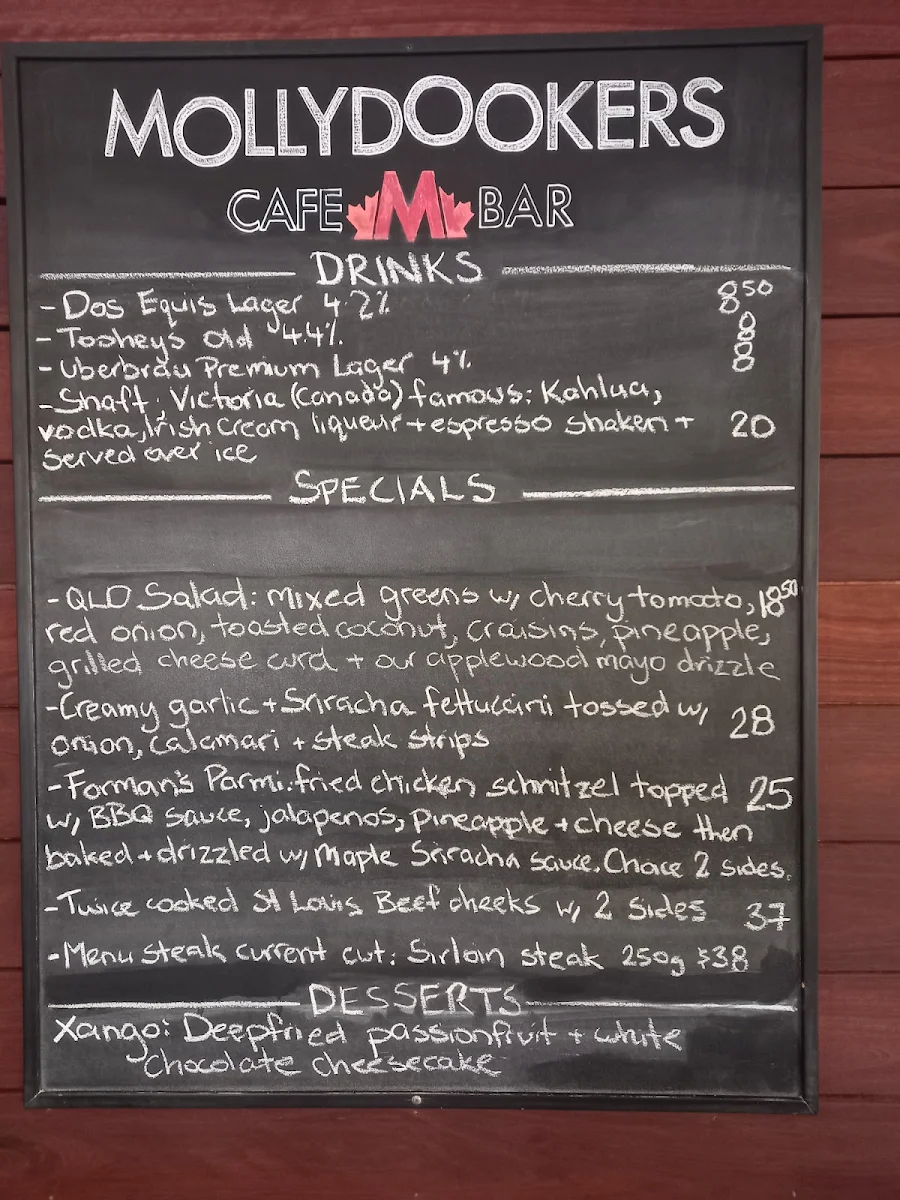 MOLLYDOOKERS
CAFE M BAR
DRINKS
- Dos Equis Lager 4.2% 8.50
- Tooheys Old 4.4% 8
- Uberbräu Premium Lager 4% 8
- Shaft: Victoria (Canada) famous: Kahlua,
vodka, Irish Cream liqueur + espresso shaken + 20
Served over ice
SPECIALS
- QLD Salad: mixed greens w/ cherry tomato, 18.50
red onion, toasted coconut, craisins, pineapple,
grilled cheese curd + our applewood mayo drizzle
- Creamy garlic + Sriracha fettuccini tossed w/ 28
onion, calamari + steak strips
- Forman's Parmi: fried chicken schnitzel topped 25
w/ BBQ sauce, jalapenos, pineapple + cheese then
baked + drizzled w/ Maple Sriracha sauce. Choice 2 sides.
- Twice cooked St Louis Beef cheeks w/ 2 Sides 37
- Menu steak current cut: Sirloin steak 250g $38
DESSERTS
Xango: Deepfried passionfruit + white
Chocolate cheesecake